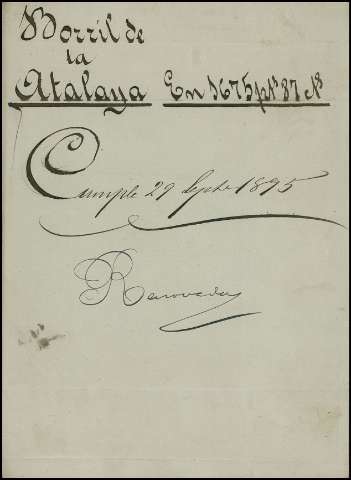 Borril de
la
Atalaya En 1675 pts 87 cts
Cumple 29 Sepbre 1895
Renovada